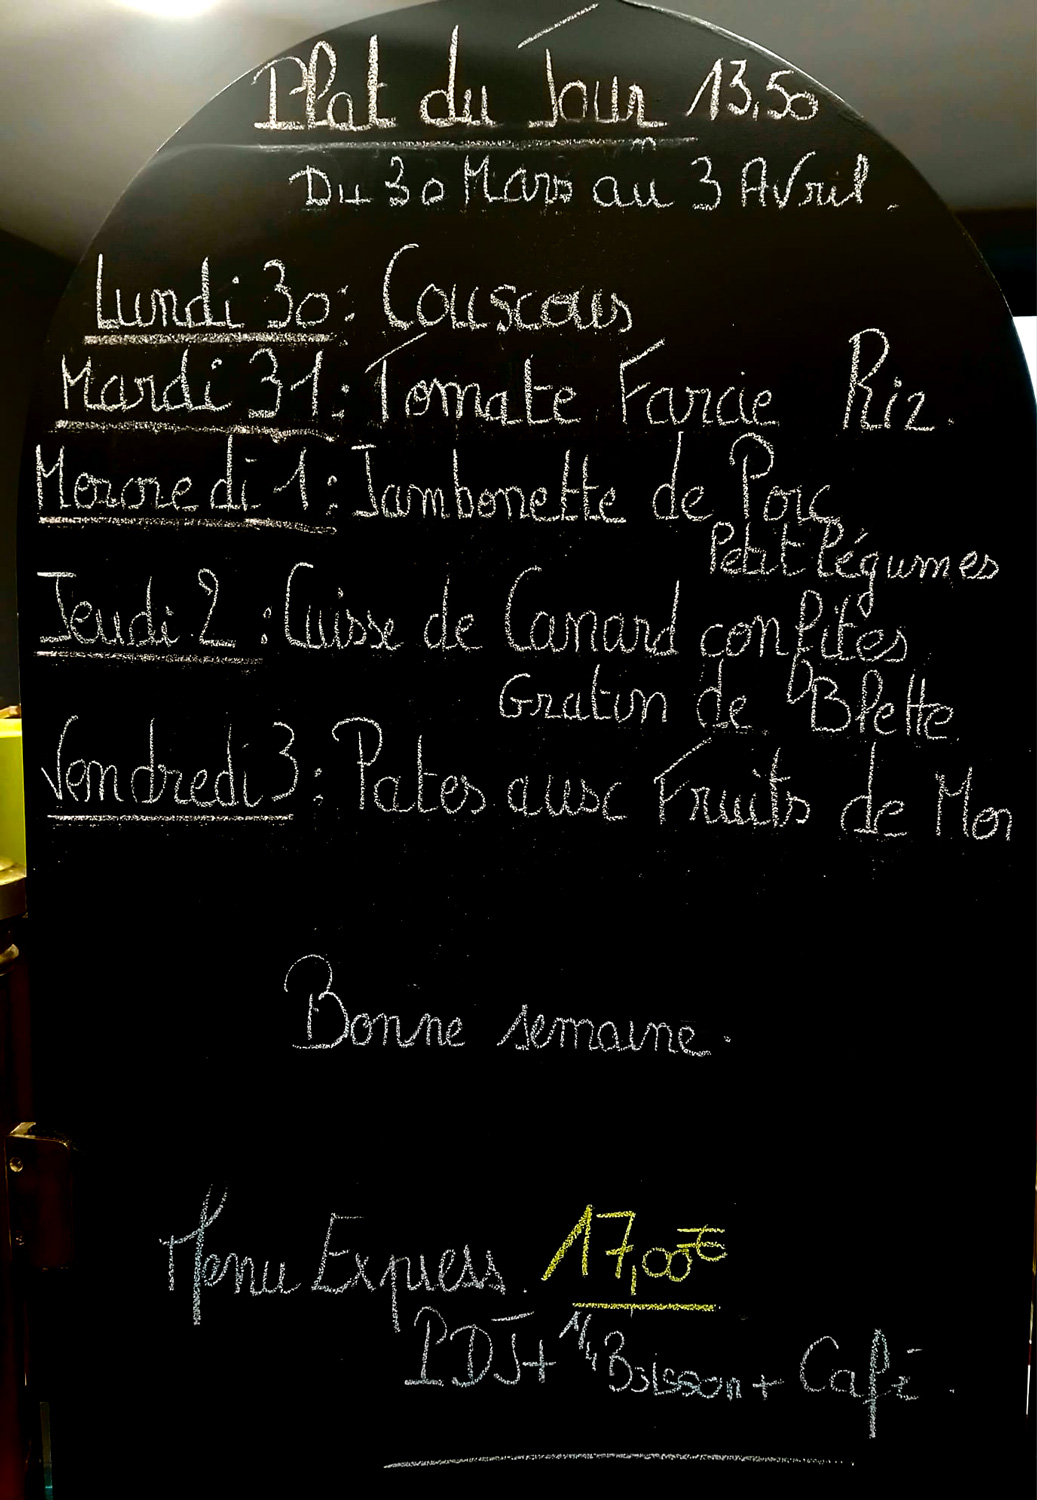 Plat du Jour 13,50
Du 30 Mars au 3 Avril.
Lundi 30: Couscous
Mardi 31: Tomate Farcie Riz.
Mercredi 1: Jambonette de Porc
Petit légumes
Jeudi 2: Cuisse de Canard confites
Gratin de Blette.
Vendredi 3: Pates aux Fruits de Mer
Bonne semaine.
Menu Express. 17,00€
PDJ + 1/4 Boisson + Café.